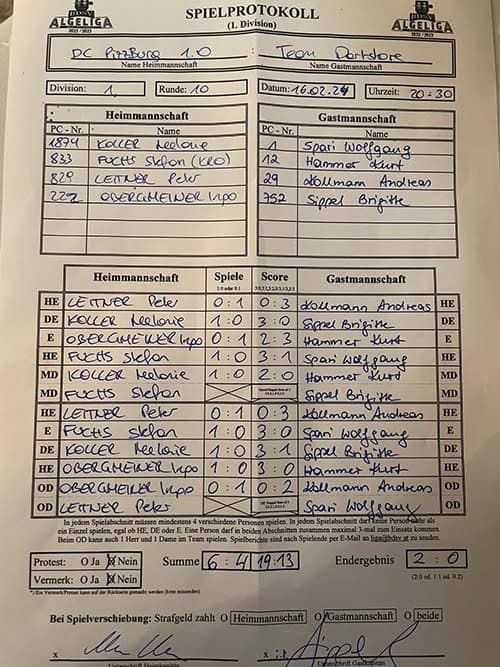 ALGELIGA SPIELPROTOKOLL ALGELIGA
2022/2023 (1. Division) 2022/2023
DC PizzBurg 1.0 : Team Dartstore
Name Heimmannschaft Name Gastmannschaft
Division: 1, Runde: 10 Datum: 16.02.24 Uhrzeit: 20:30
Heimmannschaft Gastmannschaft
PC - Nr. Name PC - Nr. Name
1874 KOLLER Melanie 1 Spari Wolfgang
833 FUCHS Stefan (KRO) 12 Hammer Kurt
829 LEITNER Peter 29 Kollmann Andreas
229 OBERGMEINER Ingo 752 Sippel Brigitte
Heimmannschaft Spiele Score Gastmannschaft
1:0 oder 0:1
HE LEITNER Peter 0:1 0:3 Kollmann Andreas HE
DE KOLLER Melanie 1:0 3:0 Sippel Brigitte DE
E OBERGMEINER Ingo 0:1 2:3 Hammer Kurt E
HE FUCHS Stefan 1:0 3:1 Spari Wolfgang HE
MD KOLLER Melanie 1:0 2:0 Hammer Kurt MD
MD FUCHS Stefan Sippel Brigitte MD
HE LEITNER Peter 0:1 0:3 Kollmann Andreas HE
E FUCHS Stefan 1:0 3:0 Spari Wolfgang E
DE KOLLER Melanie 1:0 3:1 Sippel Brigitte DE
HE OBERGMEINER Ingo 1:0 3:0 Hammer Kurt HE
OD OBERGMEINER Ingo 0:1 0:2 Kollmann Andreas OD
OD LEITNER Peter Spari Wolfgang OD
In jedem Spielabschnitt müssen mindestens 4 verschiedene Personen spielen. In jedem Spielabschnitt darf keine Person mehr als
ein Einzel spielen, egal ob HE, DE oder E. Eine Person darf in beiden Abschnitten zusammen maximal 3-mal zum Einsatz kommen.
Beim OD kann auch 1 Herr und 1 Dame im Team spielen. Spielberichte sind nach Spielende per E-Mail an liga@bdsv.at zu senden.
Protest: O Ja O Nein Summe 6:4 19:13 Endergebnis 2:0
Vermerk: O Ja O Nein (2:0 od. 1:1 od. 0:2)
*) Ein Vermerk/Protest kann auf der Rückseite gemacht werden (bitte mitsenden)
Bei Spielverschiebung: Strafgeld zahlt O Heimmannschaft O Gastmannschaft O beide
x x
Unterschrift Heimkapitän Unterschrift Gastkapitän